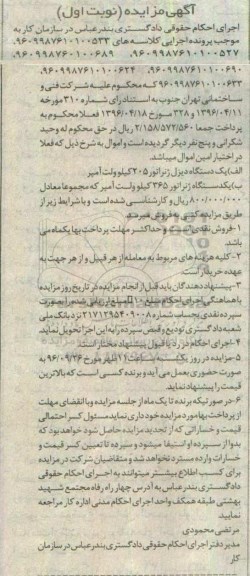 آگهی مزایده (نوبت اول)
اجرای احکام حقوقی دادگستری بندرعباس در سازمان کار به
موجب پرونده اجرایی کلاسه های ۹۶۰۹۹۸۷۶۱۰۱۰۰۵۳۳،
۹۶۰۹۹۸۷۶۱۰۱۰۰۵۲۷، ۹۶۰۹۹۸۷۶۱۰۱۰۰۶۸۹،
۹۶۰۹۹۸۷۶۱۰۱۰۰۶۹۰، ۹۶۰۹۹۸۷۶۱۰۱۰۰۶۲۴،
۹۶۰۹۹۸۷۶۱۰۱۰۰۶۳۳ که محکوم علیه شرکت فنی و
ساختمانی تهران جنوب به استناد رای شماره ۳۱۰ مورخه
۱۳۹۶/۰۴/۱۱ و ۳۲۸ مورخ ۱۳۹۶/۰۴/۱۸ فعلا محکوم به
پرداخت جمعا ۲/۱۵۸/۵۷۲/۵۶۰ ریال در حق محکوم له وحید
شکرانی و پنج نفر دیگر گردیده است و اموال به شرح ذیل که فعلا
در اختیار امین اموال میباشد.
الف) یک دستگاه دیزل ژنراتور ۲۰۵ کیلو ولت آمپر
ب) یکدستگاه ژنراتور ۳۶۵ کیلو ولت آمپر که مجموعا معادل
۸۰۰/۰۰۰/۰۰۰ ریال و کارشناسی شده است و با شرایط زیر از
طریق مزایده کتبی به فروش میرسد.
۱-فروش نقدی است و حداکثر مهلت پرداخت بها یکماه می
باشد.
۲- کلیه هزینه های مربوط به معامله از هر قبیل و از هر جهت به
عهده خریدار است.
۳-پیشنهاد دهندگان باید قبل از انجام مزایده در تاریخ روز مزایده
با هماهنگی اجرای احکام مبلغ ۱۰٪ مبلغ ارزیابی شده را بصورت
سپرده نقدی بحساب شماره ۲۱۷۱۲۹۵۴۰۹۰۰۸ نزد بانک ملی
شعبه دادگستری تودیع و قبض سپرده را به این اجرا تحویل نماید.
۴-اجرای احکام در رد یا قبول پیشنهاد مختار است.
۵-مزایده در روز یکشنبه ساعت ۱۱ ظهر مورخ ۹۶/۰۹/۲۶ به
صورت حضوری بعمل می آید و برنده کسی است که بالاترین
قیمت را پیشنهاد نماید
۶-در صورتیکه برنده تا یک ماه از جلسه مزایده و با انقضای مهلت
از پرداخت بها مورد مزایده خودداری نماید مسئول کسر احتمالی
قیمت و خساراتی که از تجدید مزایده حاصل شود خواهد بود که
بدوا از سپرده او استیفا میشود و سپرده تا تعیین کسر قیمت و
خسارات وارده مسترد نخواهد شد و متقاضیان شرکت در مزایده
برای کسب اطلاع بیشتر میتوانند به اجرای احکام حقوقی
دادگستری بندرعباس به آدرس چهار راه رفاه مجتمع شهید
بهشتی طبقه همکف واحد اجرای احکام مدنی اداره کار مراجعه
نمایید
مرتضی محمودی
مدیر دفتر اجرای احکام حقوقی دادگستری بندرعباس در سازمان
کار